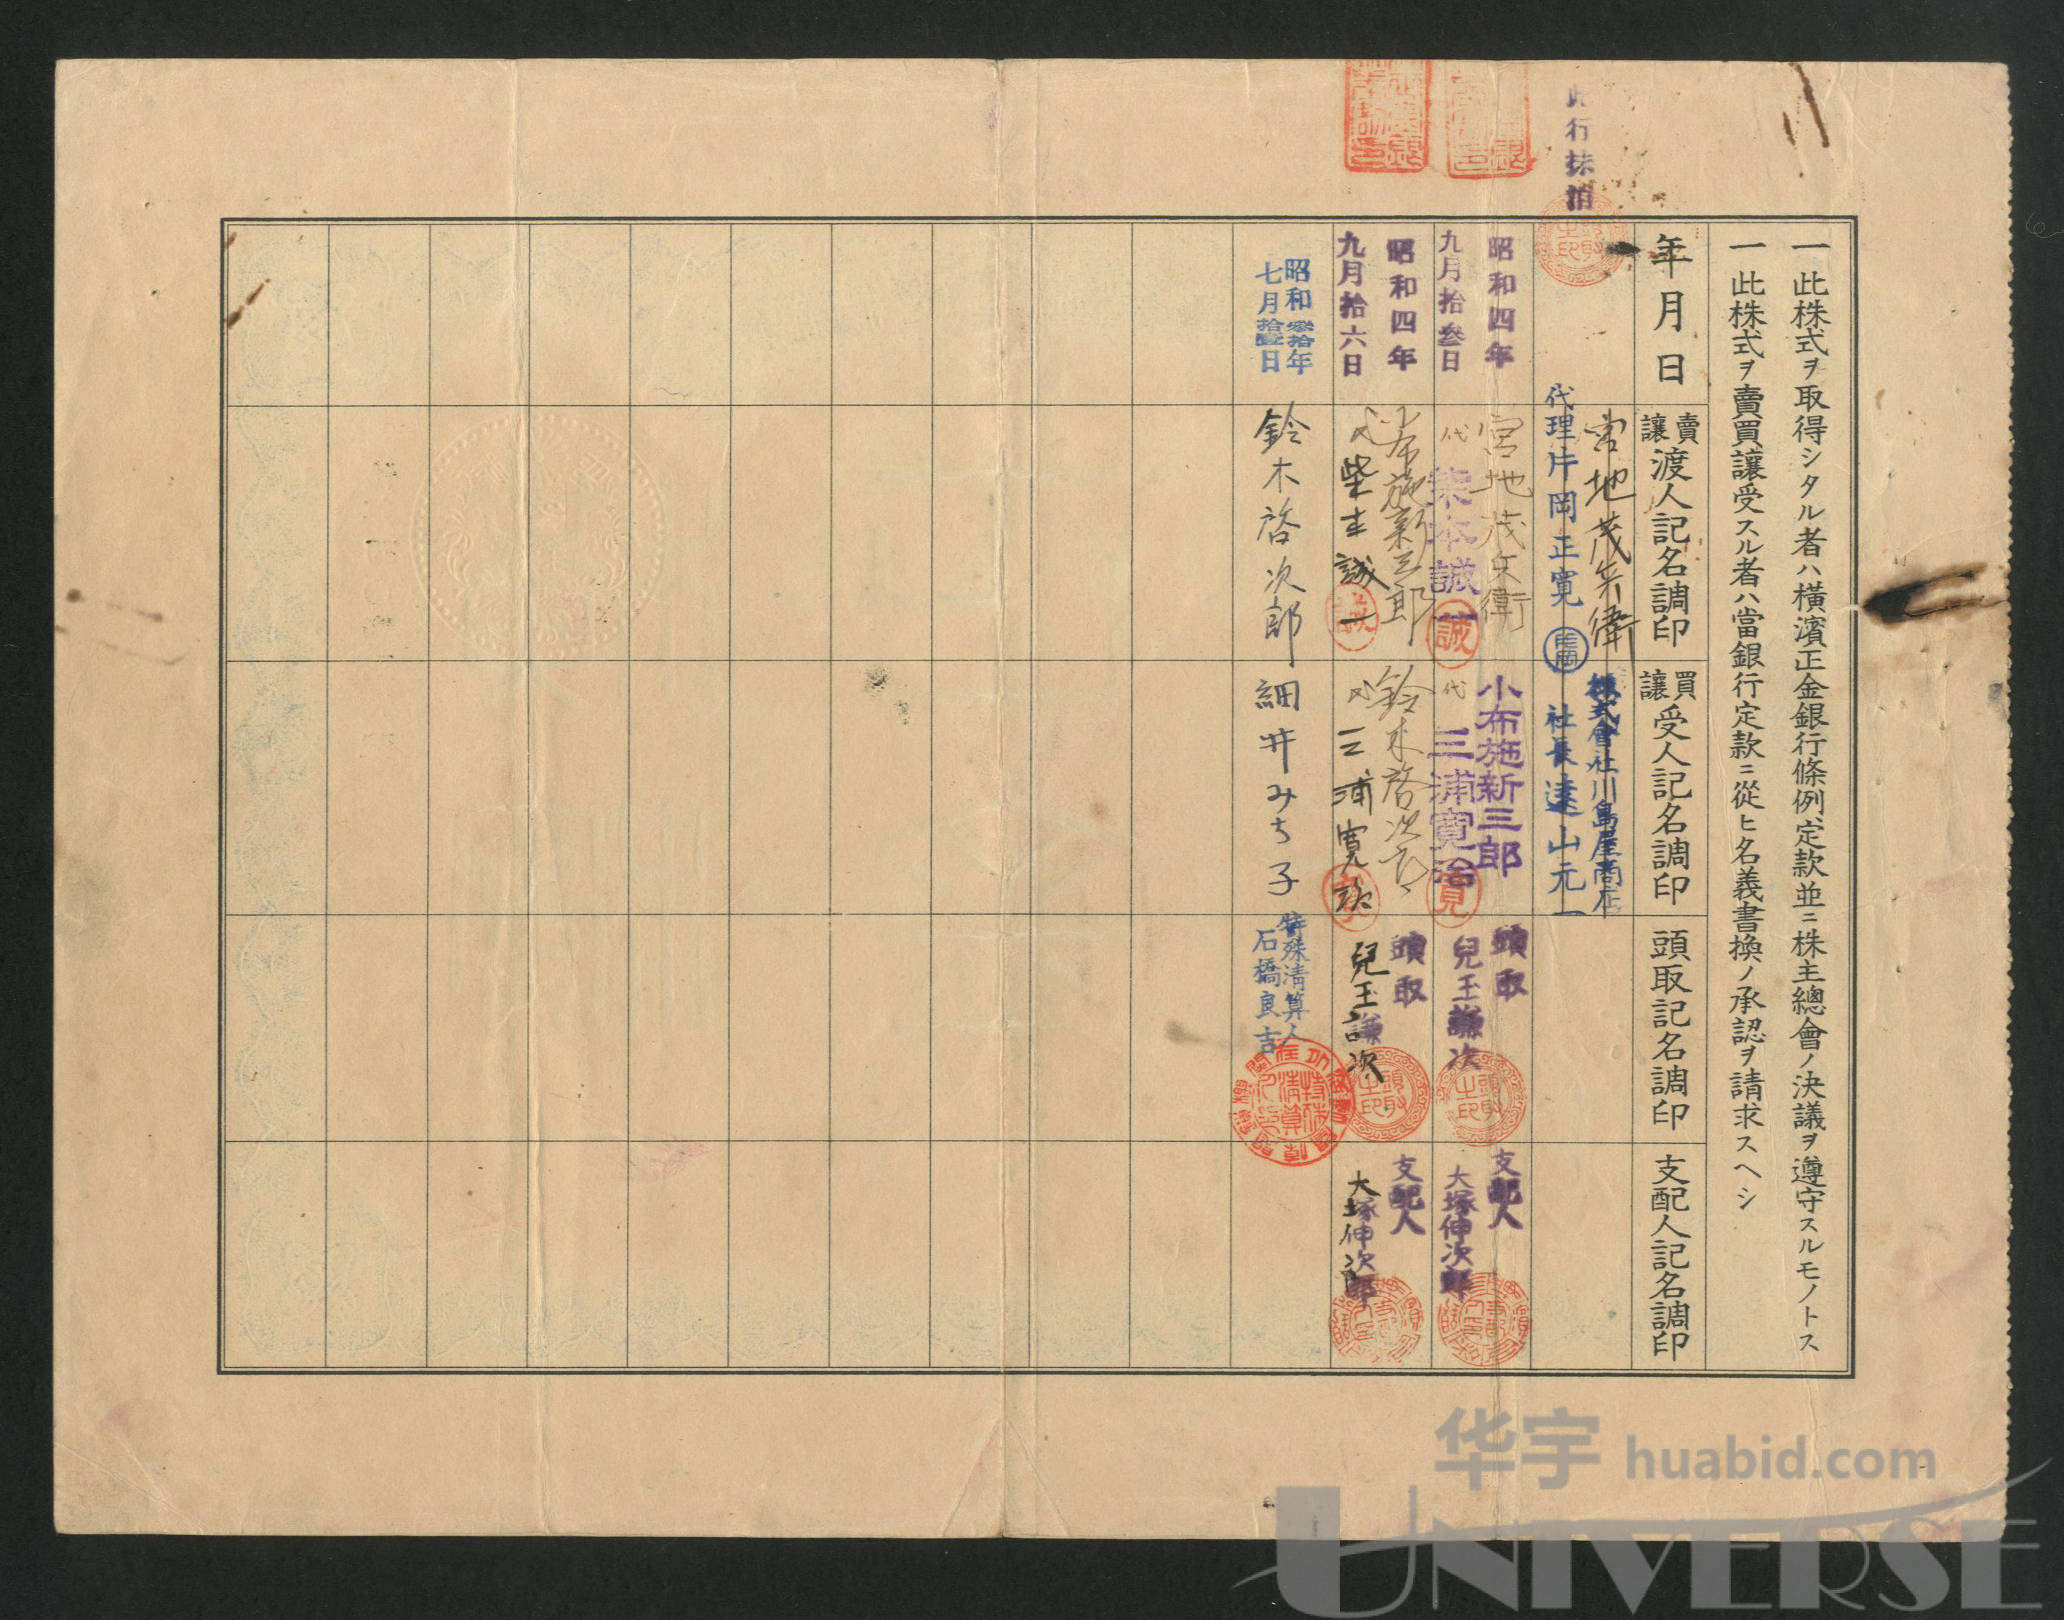 一 此株式ヲ取得シタル者ハ橫濱正金銀行條例定款並ニ株主總會ノ決議ヲ遵守スルモノトス
一 此株式ヲ賣買讓受スル者ハ當銀行定款ニ從ヒ名義書換ノ承認ヲ請求スヘシ
年月日
賣讓渡人記名調印
買讓受人記名調印
頭取記名調印
支配人記名調印
此行抹消
宮地茂兵衛
代理片岡正寬
株式會社川島屋商店
社長遠山元一
昭和四年
九月拾叄日
宮地茂兵衛
代 柴本誠一
誠
小布施新三郎
代 三浦寬治
寬
頭取
兒玉謙次
頭取之印
支配人
大塚伸次郎
昭和四年
九月拾六日
小布施新三郎
代 柴本誠一
誠
鈴木啓次郎
代 三浦寬治
頭取
兒玉謙次
頭取之印
支配人
大塚伸次郎
昭和叄拾年
七月拾壹日
鈴木啓次郎
細井みち子
特殊清算人
石橋良吉
华宇 huabid.com
UNIVERSE